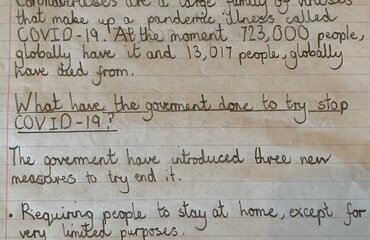 Coronaviruses are a large family of viruses
that make up a pandemic illness called
COVID-19! At the moment 723,000 people,
globally have it and 13,017 people, globally
have died from.
What have the goverment done to try stop
COVID-19?
The goverment have introduced three new
measures to try end it.
• Requiring people to stay at home, except for
very limited purposes.